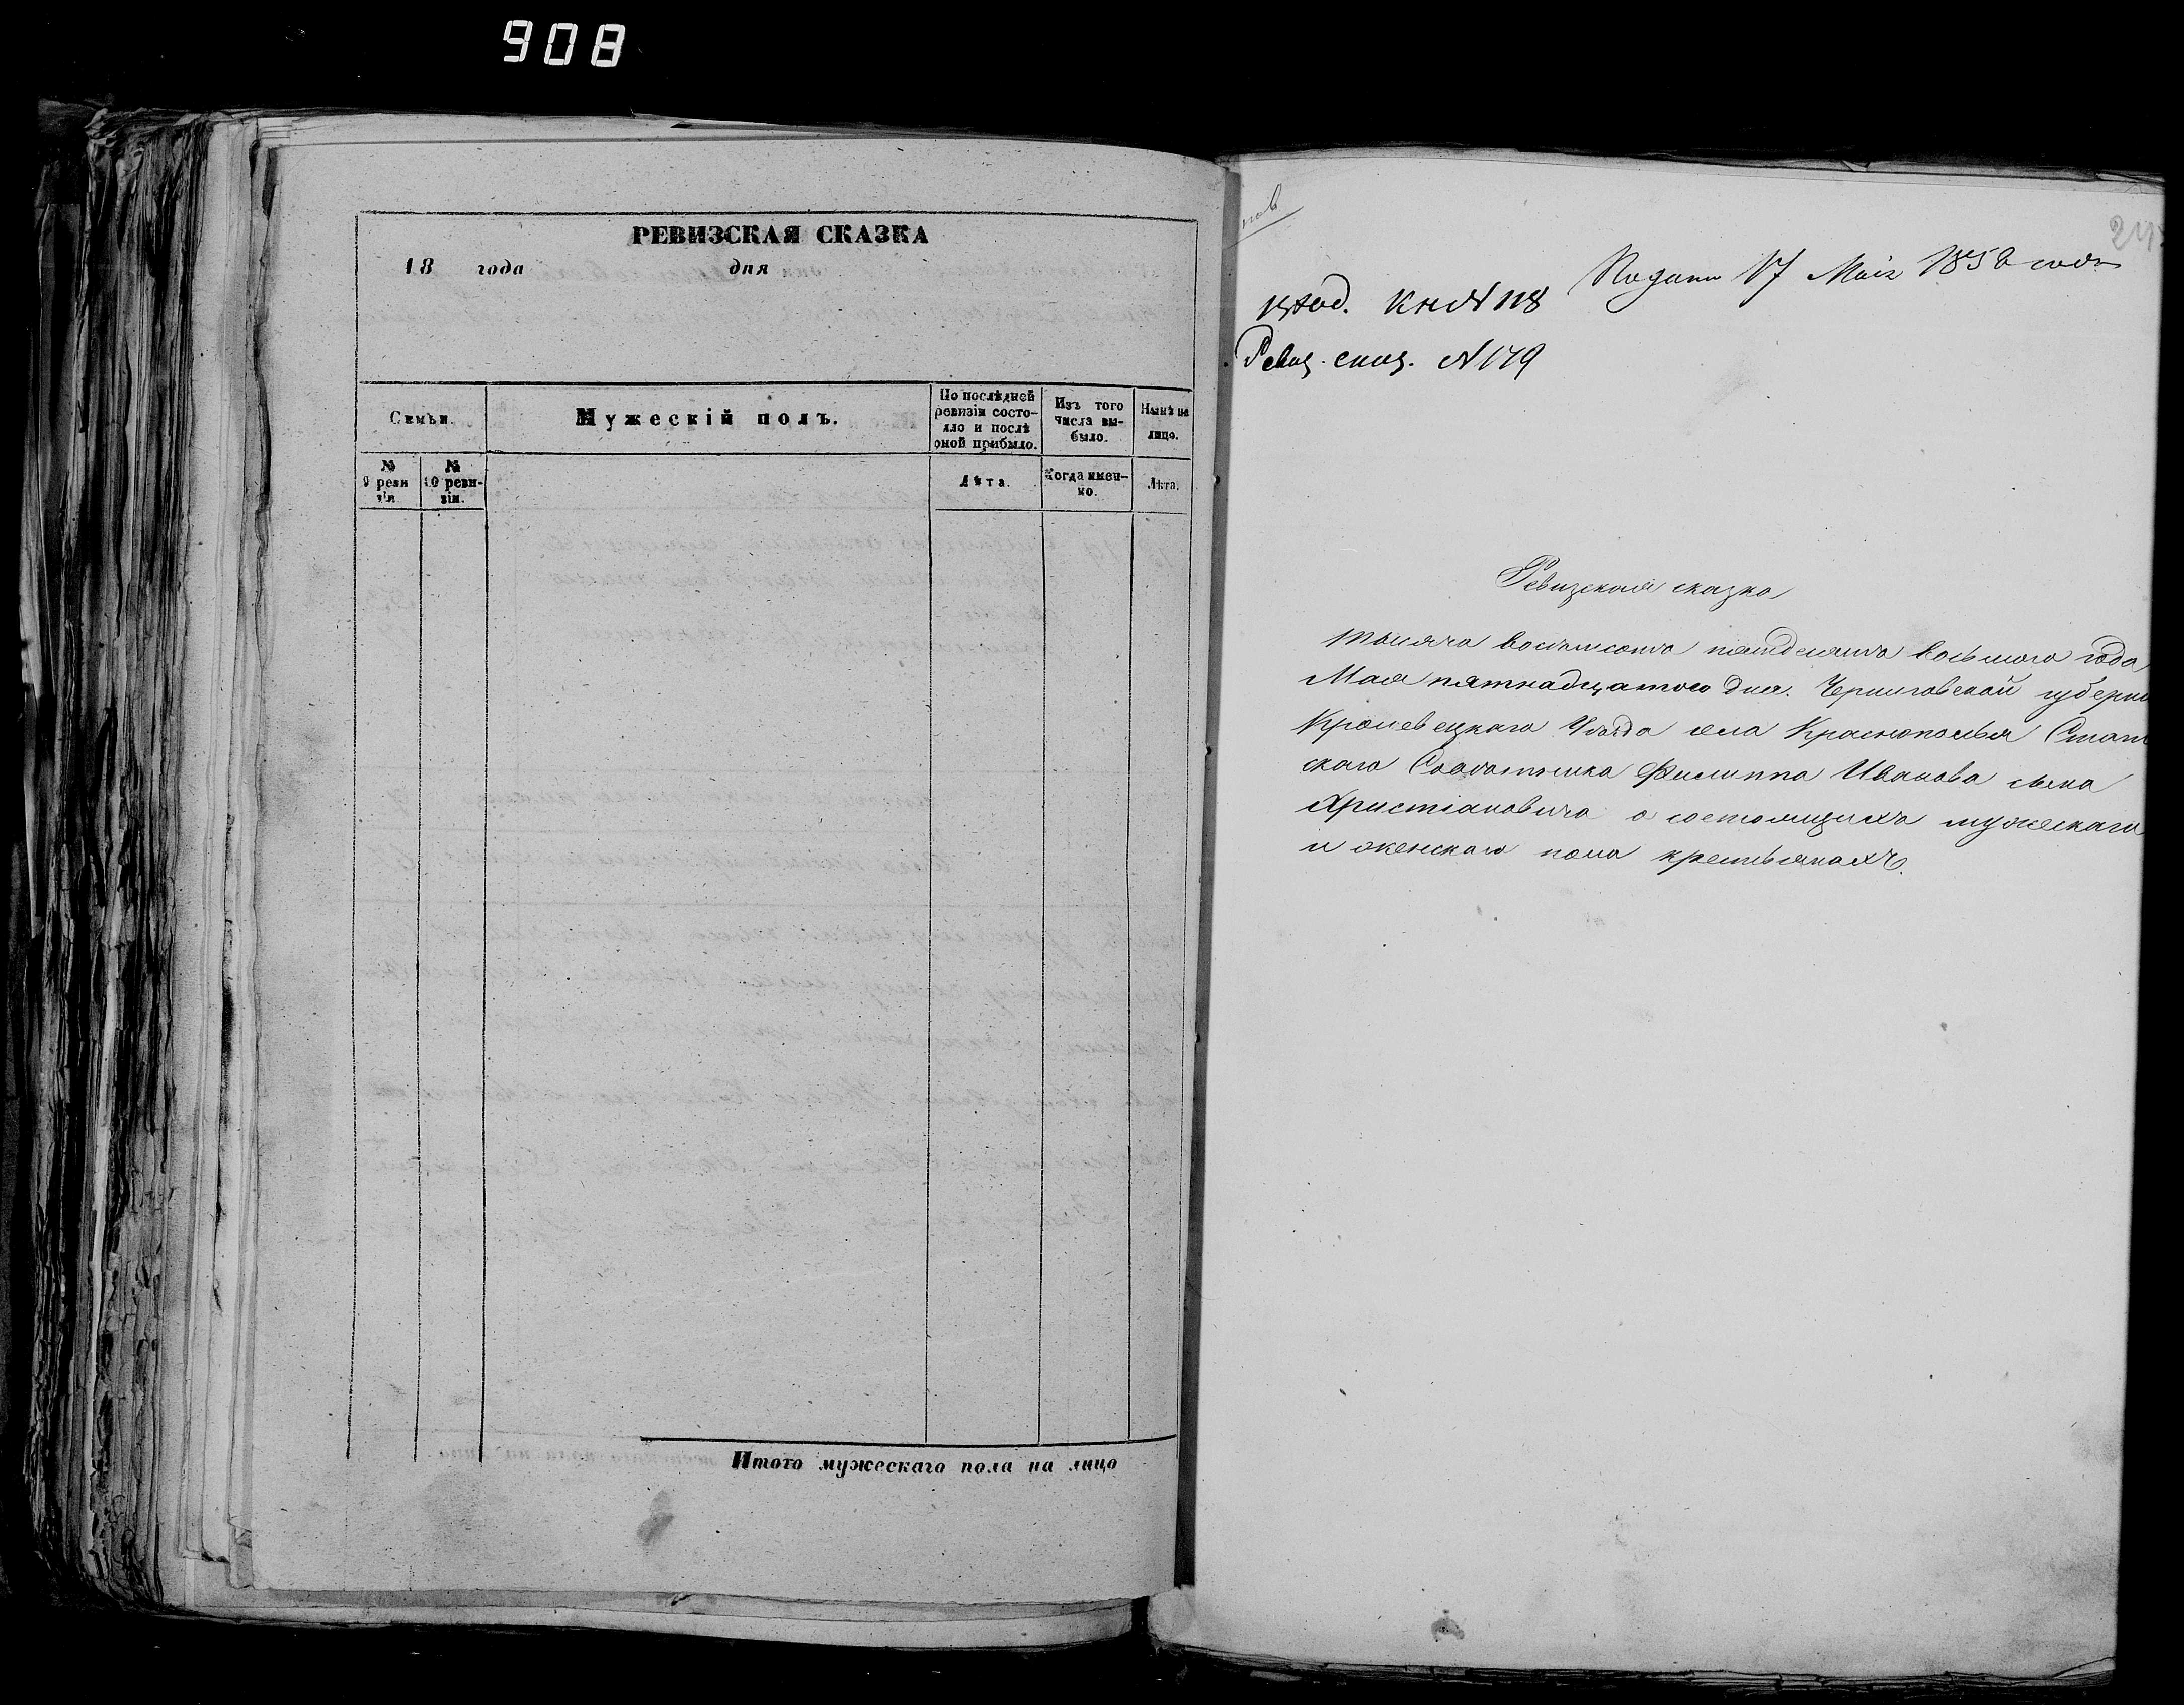 908
РЕВИЗСКАЯ СКАЗКА
18 года дня
Семьи.
Мужескій полъ.
По послѣдней ревизіи состояло и послѣ оной прибыло.
Изъ того числа выбыло.
Нынѣ на лицо.
№ 9 ревизіи.
№ 10 ревизіи.
Лѣта.
Когда именно.
Лѣта.
Итого мужескаго пола на лицо
Подана 17 Маія 1858 года
вход. Кн № 118
Ревиз. №179
Ревизская сказка
тысяча восемьсотъ пятьдесятъ восьмого года
Мая пятнадцатого дня. Черниговской губерніи
Кролевецкаго Уѣзда села Краснополья Статскаго
Совѣтника Филиппа Иванова сына
Христіановича о состоящихъ мужескаго
и женскаго пола крестьянахъ.